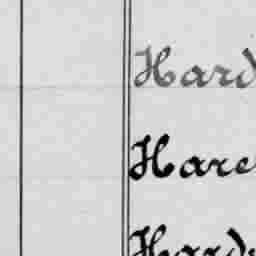 Hard
Hare
Hard